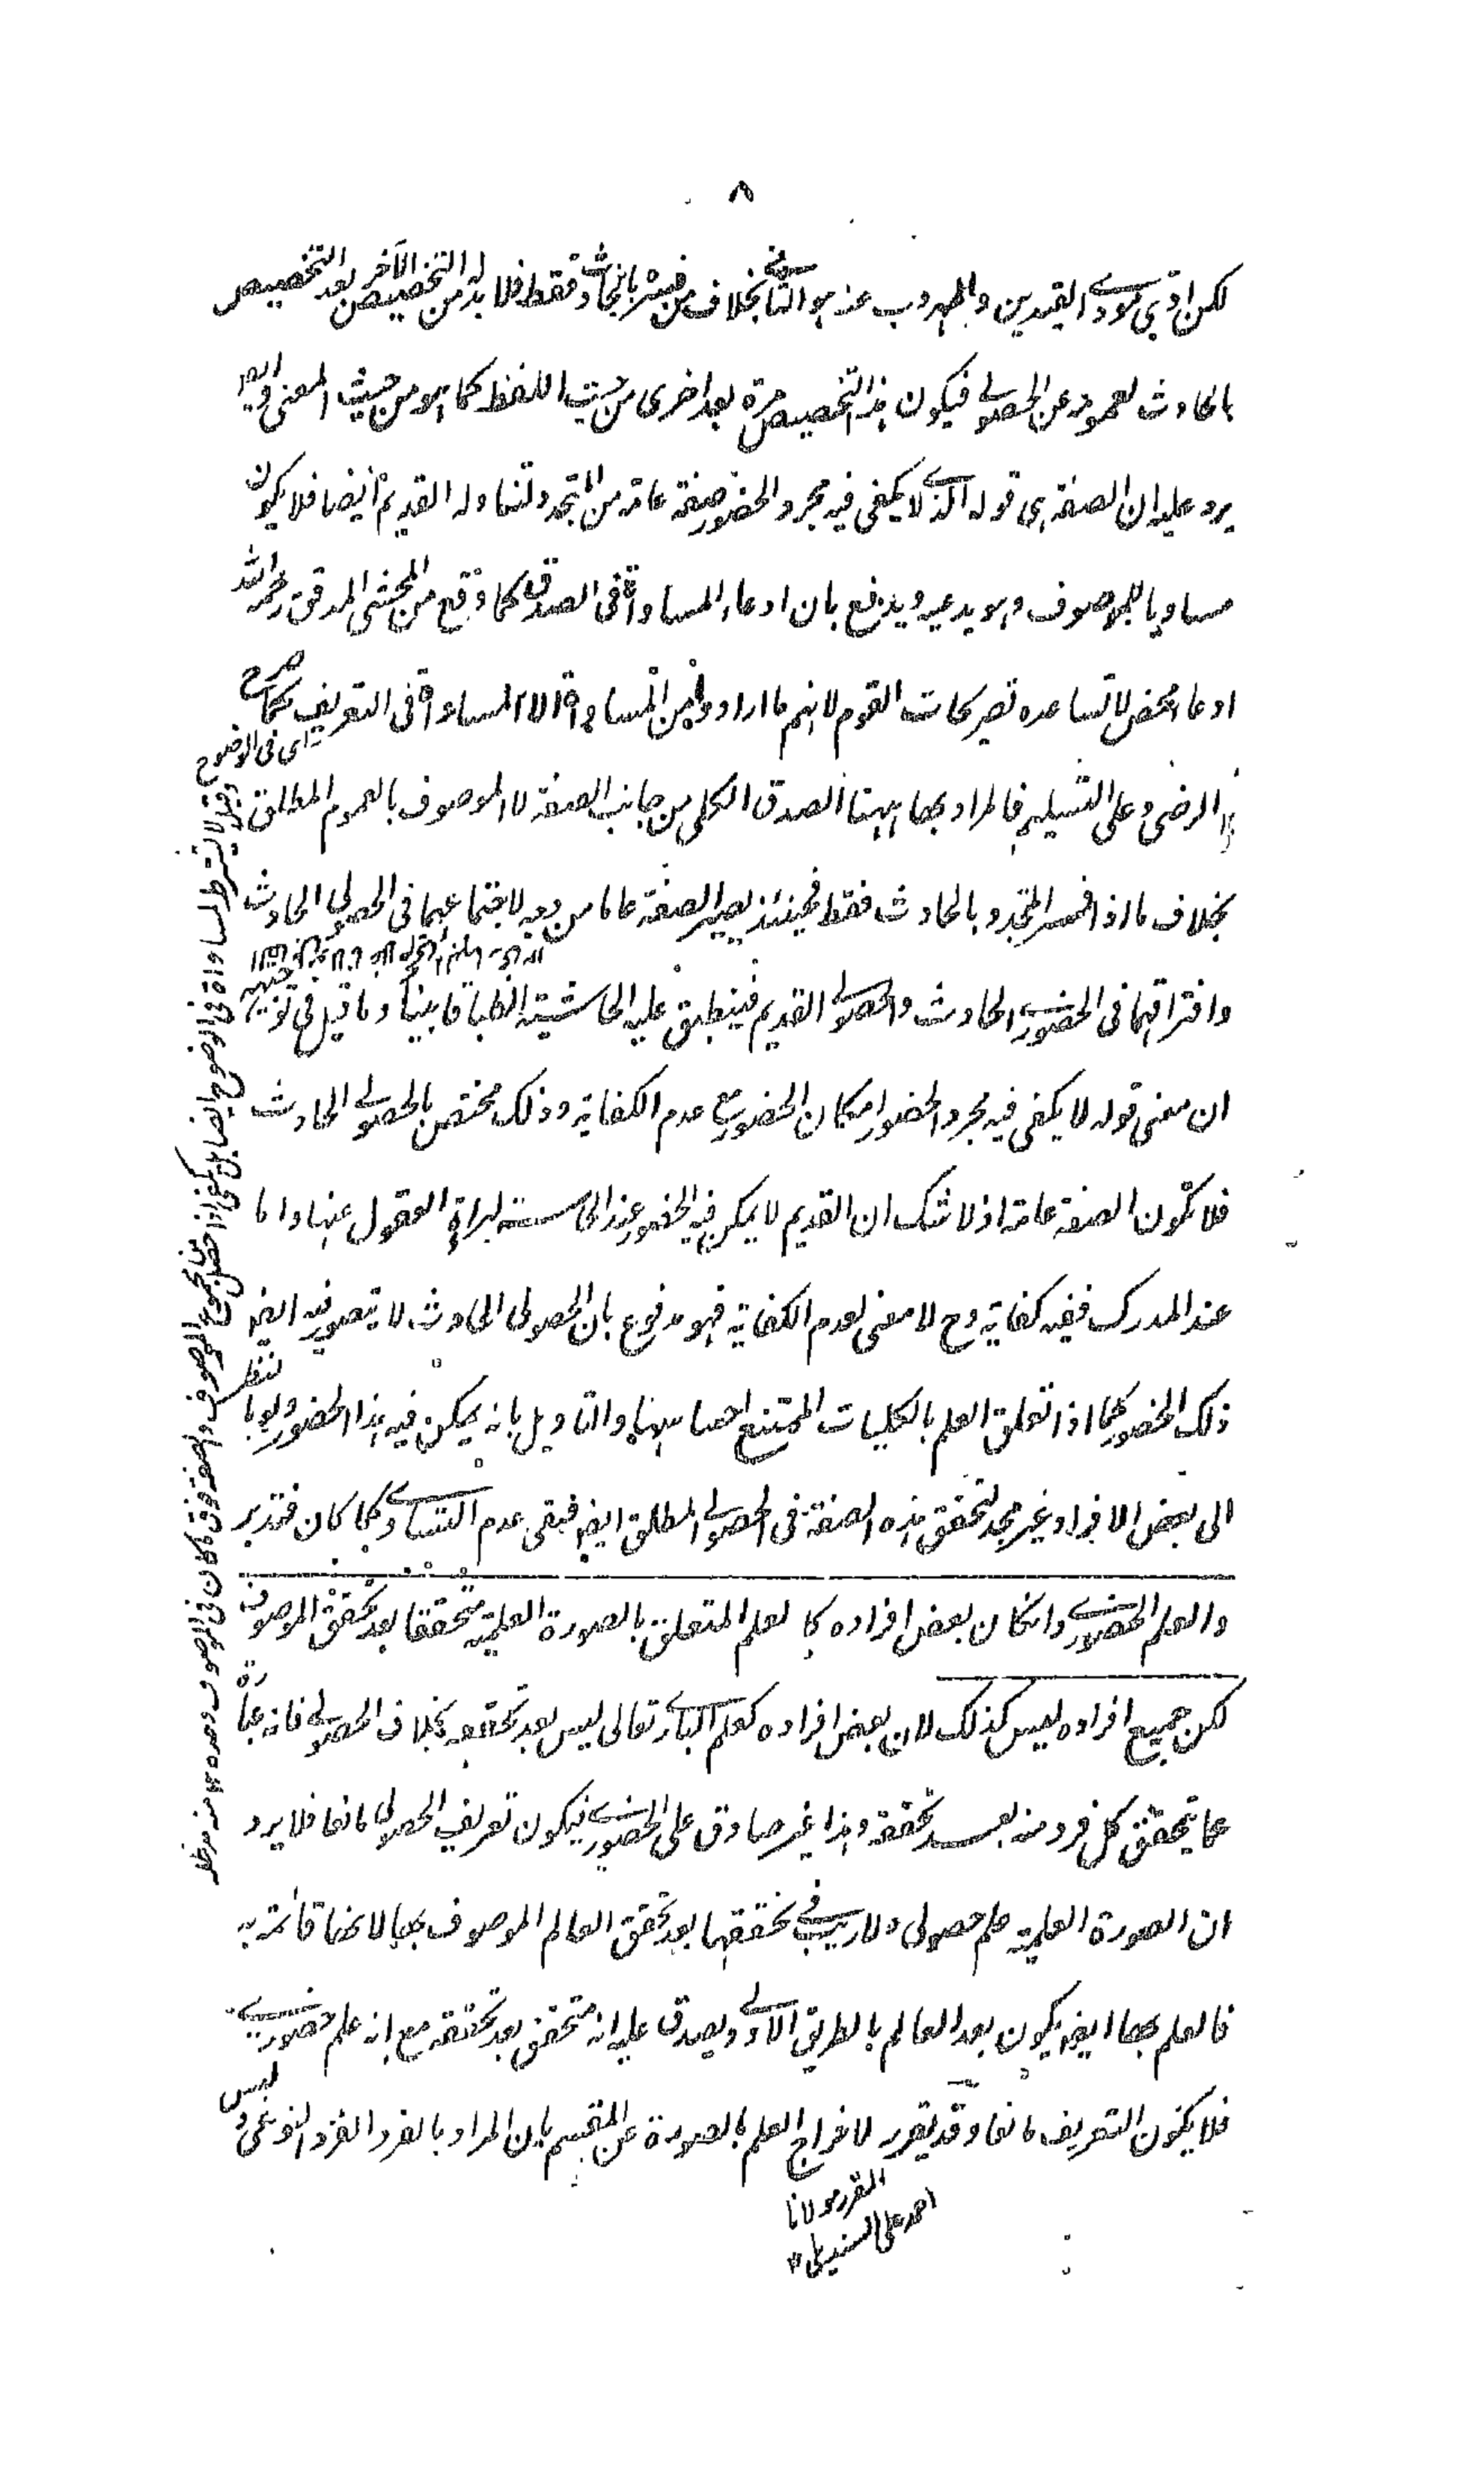 ٨
لكن ادى مؤدى القيدين والمهروب عنه هو الثانى بخلاف من فسر بالحادث فقط فلا بد له من التخصيص الآخر بعد التخصيص
بالحادث لعمومه عن الحصولى فيكون هذا التخصيص مرة بعد اخرى من حيث اللفظ كما هو من حيث المعنى
يرد عليه ان الصفة هى قوله الذى لا يكفى فيه مجرد الحضور صفة عامة من المتجدد لتناوله القديم ايضا فلا يكون
مساويا للموصوف وهو يدعيه ويدفع بان ادعاء المساواة فى الصدق كما وقع من المحشى المدقق رحمه الله
ادعاء محض لا تساعده تصريحات القوم لانهم ما ارادوا من المساواة الا المساواة فى التعريف كما صرح
اى فى الوضوح
الرضى وعلى التسليم فالمراد بها ههنا الصدق الكلى من جانب الصفة لا الموصوف بالعموم المطلق
بخلاف ما اذا فسر المتجدد بالحادث فقط فحينئذ يصير الصفة عاما من وجه لاجتماعهما فى الحصولى الحادث
وافتراقهما فى الحضورى الحادث والحصولى القديم فينطبق عليه الحاشية انطباقا بينا وما قيل فى توجيهه
ان معنى قوله لا يكفى فيه مجرد الحضور امكان الحضور مع عدم الكفاية وذلك مختص بالحصولى الحادث
فلا تكون الصفة عامة اذ لا شك ان القديم لا يمكن فيه الحضور عند الحاسة لبراءة العقول عنها واما
عند المدرك ففيه كفاية وح لا معنى لعدم الكفاية فهو مدفوع بان الحصولى الحادث لا يتصور فيه ايضا
ذلك الحضور كما اذا تعلق العلم بالكليات الممتنع احساسها والتاويل بانه يمكن فيه هذا الحضور ولو بالنظر
الى بعض الافراد غير مجد لتحقق هذه الصفة فى الحصولى المطلق ايضا فبقى عدم التساوى كما كان فتدبر
والعلم الحضورى وان كان بعض افراده كالعلم المتعلق بالصورة العلمية متحققا بعد تحقق الموصوف
لكن جميع افراده ليس كذلك لان بعض افراده كعلم البارى تعالى ليس بعد تحققه بخلاف الحصولى فانه عبارة
عما يتحقق كل فرد منه بعد تحققه وهذا غير صادق على الحضورى فيكون تعريف الحصولى مانعا فلا يرد
ان الصورة العلمية علم حصولى ولا ريب فى تحققها بعد تحقق العالم الموصوف بها لانها قائمة به
فالعلم بها ايضا يكون بعد العالم بالطريق الاولى ويصدق عليه انه متحقق بعد تحققه مع انه علم حضورى
فلا يكون التعريف مانعا وقد يقرر لاخراج العلم بالصورة عن المقسم بان المراد بالفرد الفرد النوعى وليس
المقرر مولانا
احمد على السنديلى ١٢
وقيل لا يشترط المساواة فى الوضوح ايضا بل يكفى اذا حصل من مجموع الموصوف والصفة فوق ما كان فى الموصوف وحده ١٢ منه مدظله